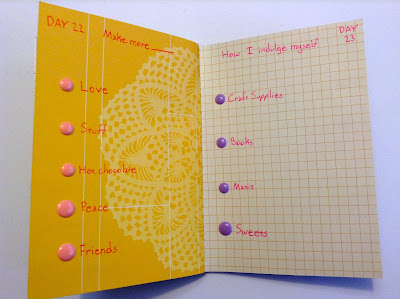 DAY 22
Make more ____
Love
Stuff
Hot chocolate
Peace
Friends
How I indulge myself
DAY
23
Craft Supplies
Books
Manis
Sweets